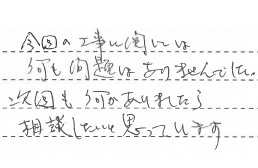 今回の工事に関しては
何も問題はありませんでした。
次回も何かありましたら
相談したいと思っています